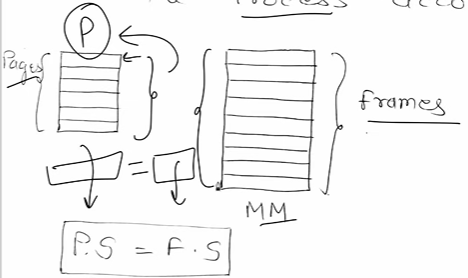 Process
P
Pages
frames
=
MM
P.S = F.S